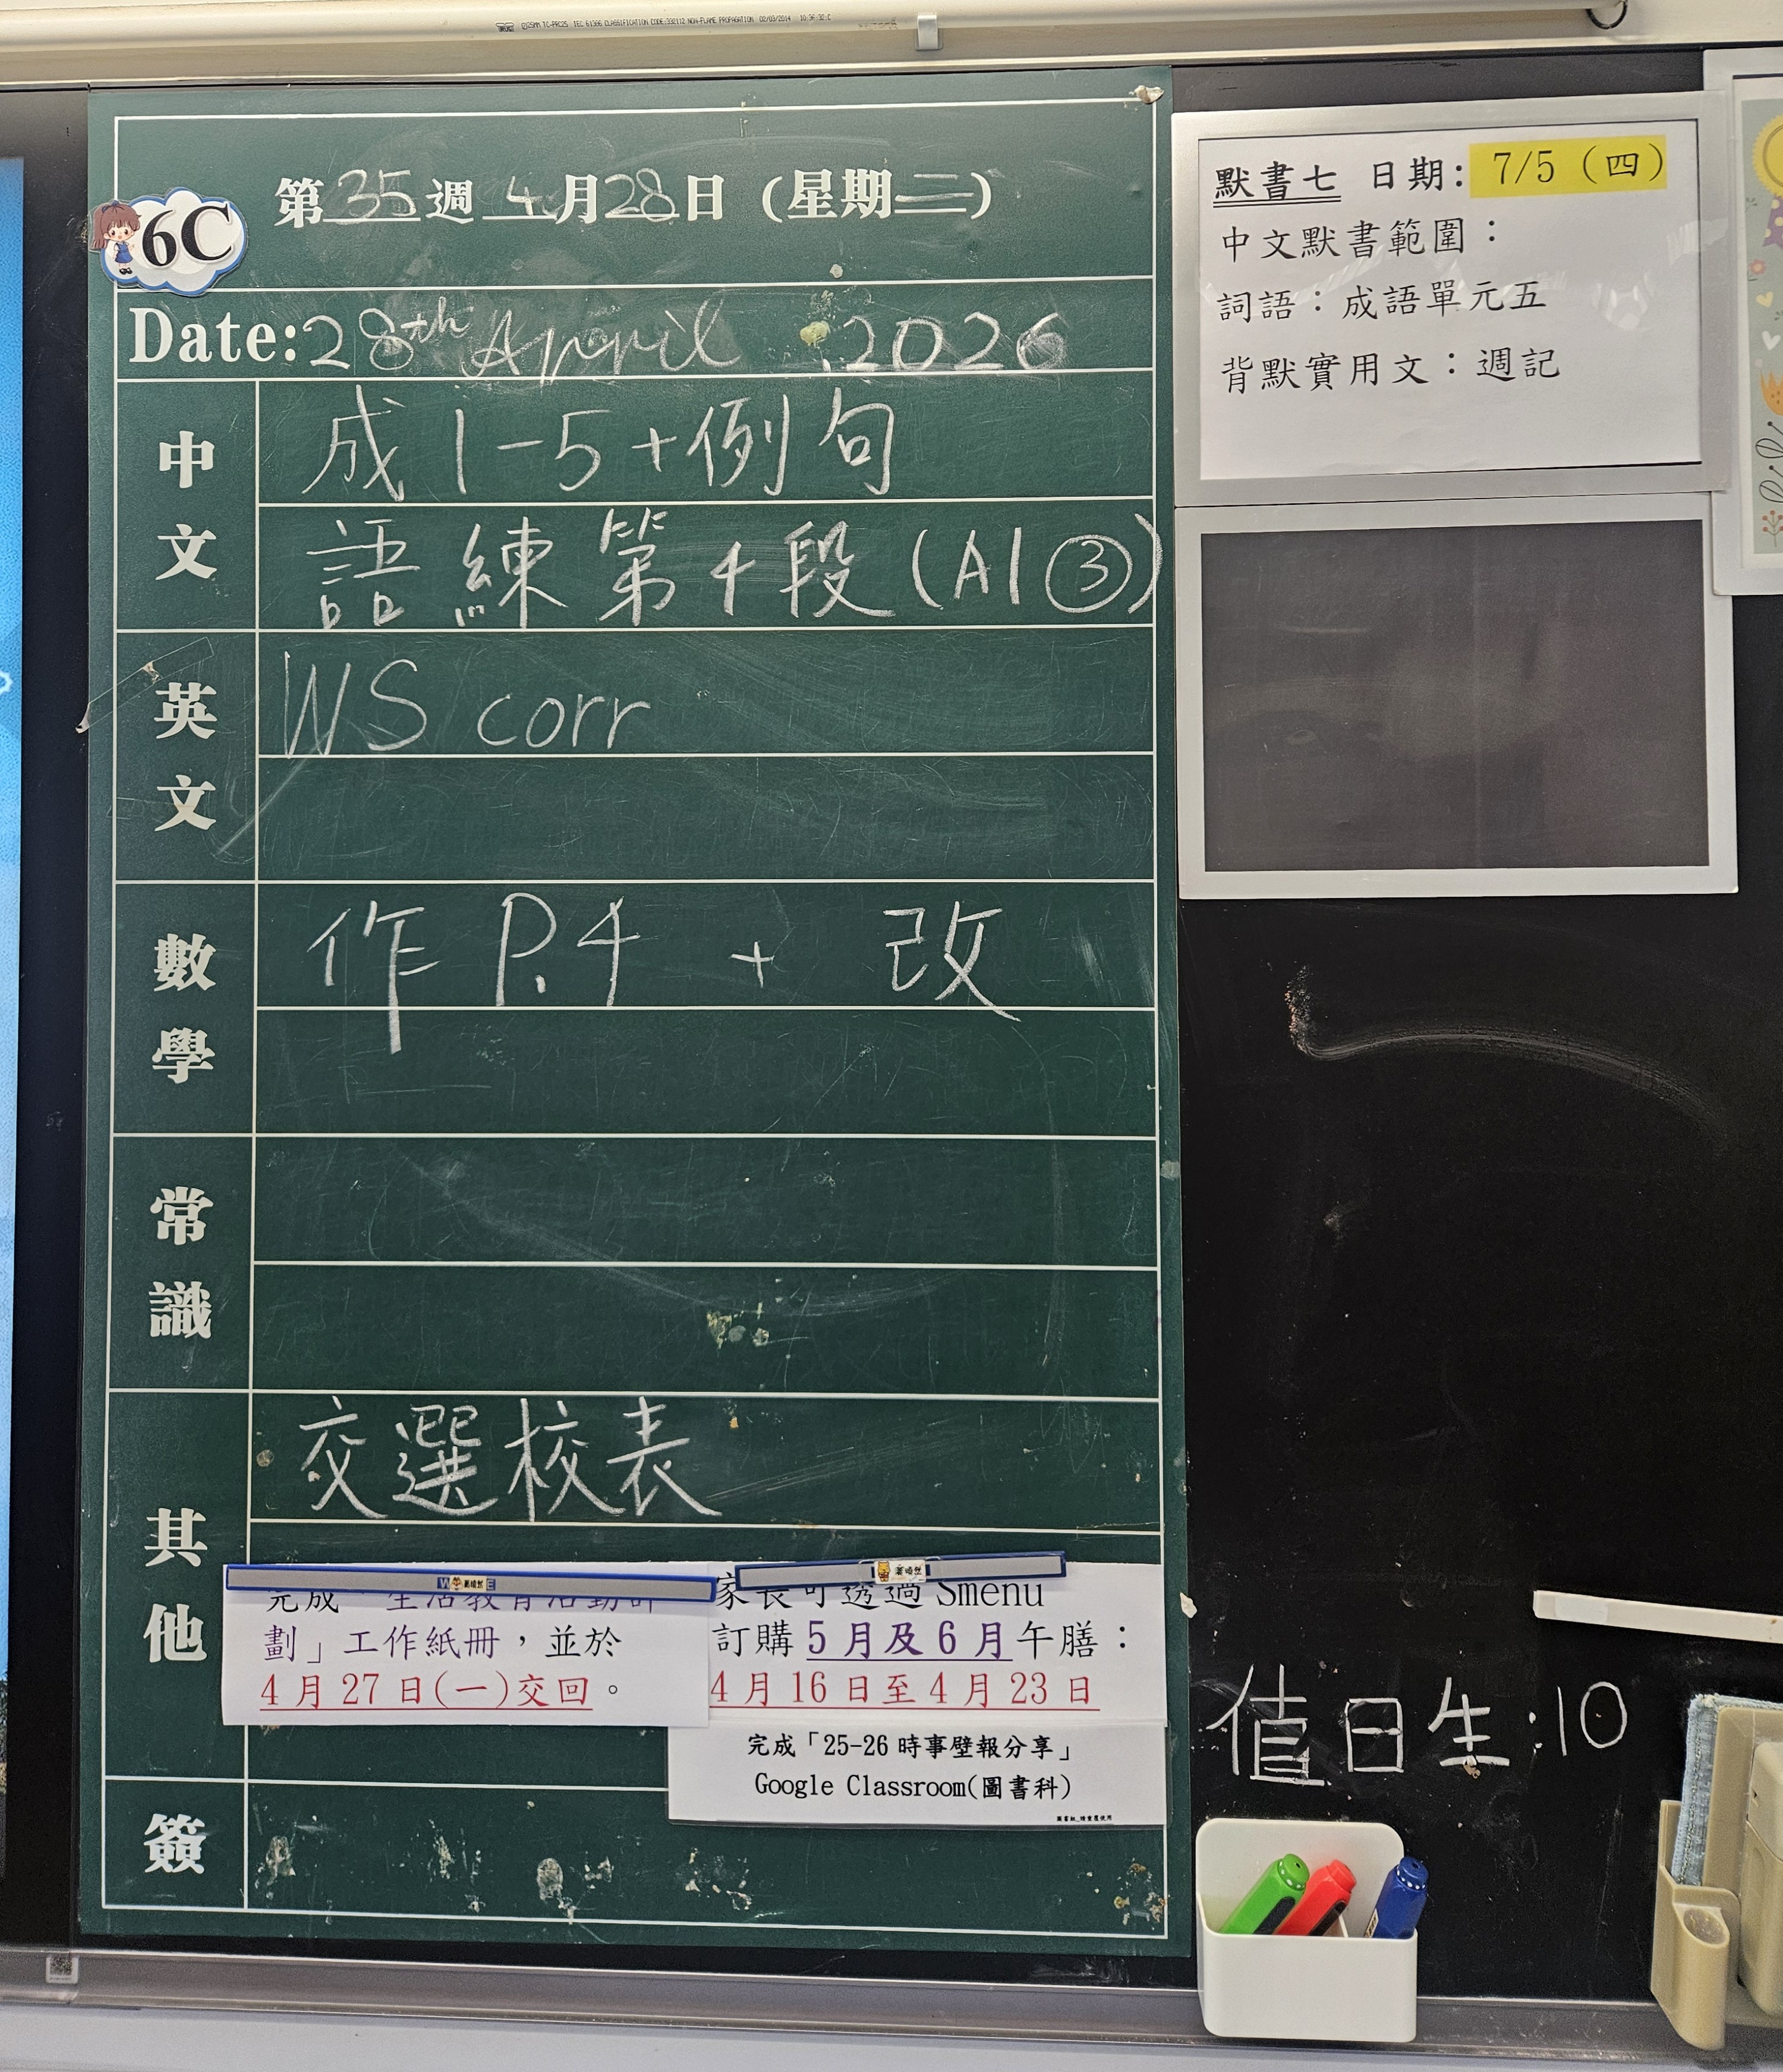 6C
第35週 4月28日 (星期二)
Date:28th April 2026
中文
成1-5+例句
語練第4段(A1③)
英文
WS corr
數學
作P.4 + 改
常識
其他
交選校表
完成「生活教育活動計
劃」工作紙冊，並於
4月27日(一)交回。
家長可透過Smenu
訂購5月及6月午膳：
4月16日至4月23日
完成「25-26 時事壁報分享」
Google Classroom(圖書科)
簽
默書七 日期: 7/5 (四)
中文默書範圍：
詞語：成語單元五
背默實用文：週記
值日生:10